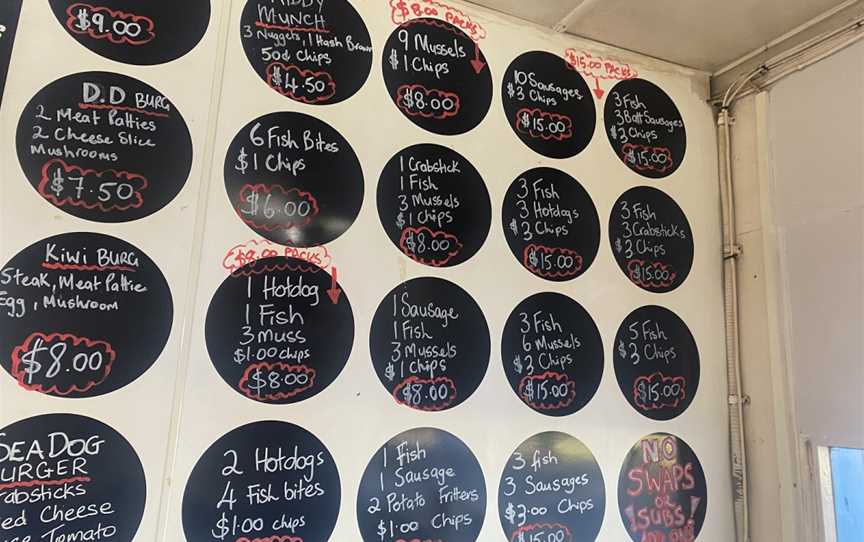 $9.00
D.D BURG
2 Meat Patties
2 Cheese Slice
Mushrooms
$7.50
KIWI BURG
Steak, Meat Pattie
Egg, Mushroom
$8.00
SEA DOG
BURGER
Cheese
Tomato
MUNCH
3 Nuggets, 1 Hash Brown
50¢ Chips
$4.50
6 Fish Bites
$1 Chips
$6.00
$8.00 PACKS
1 Hotdog
1 Fish
3 Muss
$1.00 chips
$8.00
2 Hotdogs
4 Fish bites
$1.00 chips
$8.00 PACKS
9 Mussels
$1 Chips
$8.00
1 Crabstick
1 Fish
3 Mussels
$1 Chips
$8.00
1 Sausage
1 Fish
3 Mussels
$1 Chips
$8.00
1 Fish
1 Sausage
2 Potato Fritters
$1.00 Chips
10 Sausages
$3 Chips
$15.00
3 Fish
3 Hotdogs
$3 Chips
$15.00
3 Fish
6 Mussels
$3 Chips
$15.00
3 fish
3 Sausages
$2.00 Chips
$15.00
$15.00 PACKS
3 Fish
3 Batt Sausages
$3 Chips
$15.00
3 Fish
3 Crabsticks
$3 Chips
$15.00
5 Fish
$3 Chips
$15.00
NO
SWAPS
OR
SUBS!